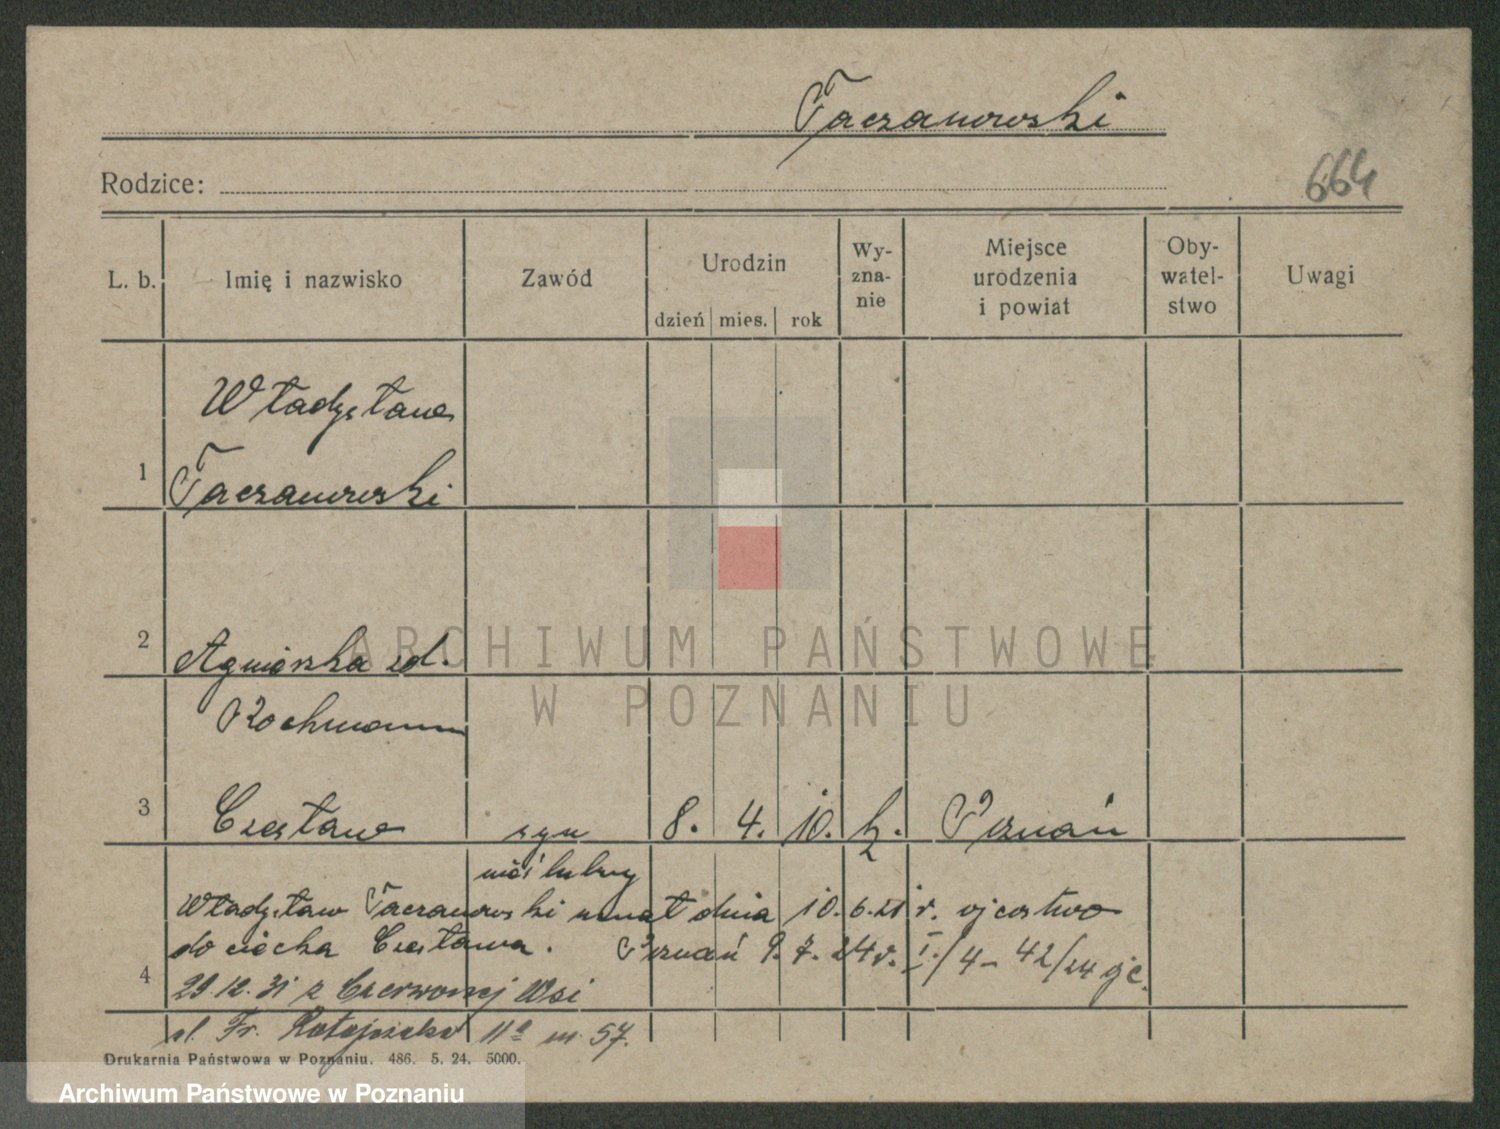 Taczanowski
Rodzice:
664
L. b.
Imię i nazwisko
Zawód
Urodzin
dzień mies. rok
Wy-
zna-
nie
Miejsce
urodzenia
i powiat
Oby-
watel-
stwo
Uwagi
Władysław
1 Taczanowski
2 Agnieszka zd.
Rochmann
3 Czesław syn 8. 4. 10. k. Poznań
nieślubny
Władysław Taczanowski uznał dnia 10.6.21 r. ojcostwo
do ciecha Czesława. Poznań 9.7.24 r. I./4-42/24
4
29.12.31 z Czerwonej Wsi
ul. Fr. Ratajczaka 11a m. 57.
Drukarnia Państwowa w Poznaniu. 486. 5. 24. 5000.
ARCHIWUM PAŃSTWOWE
W POZNANIU
Archiwum Państwowe w Poznaniu